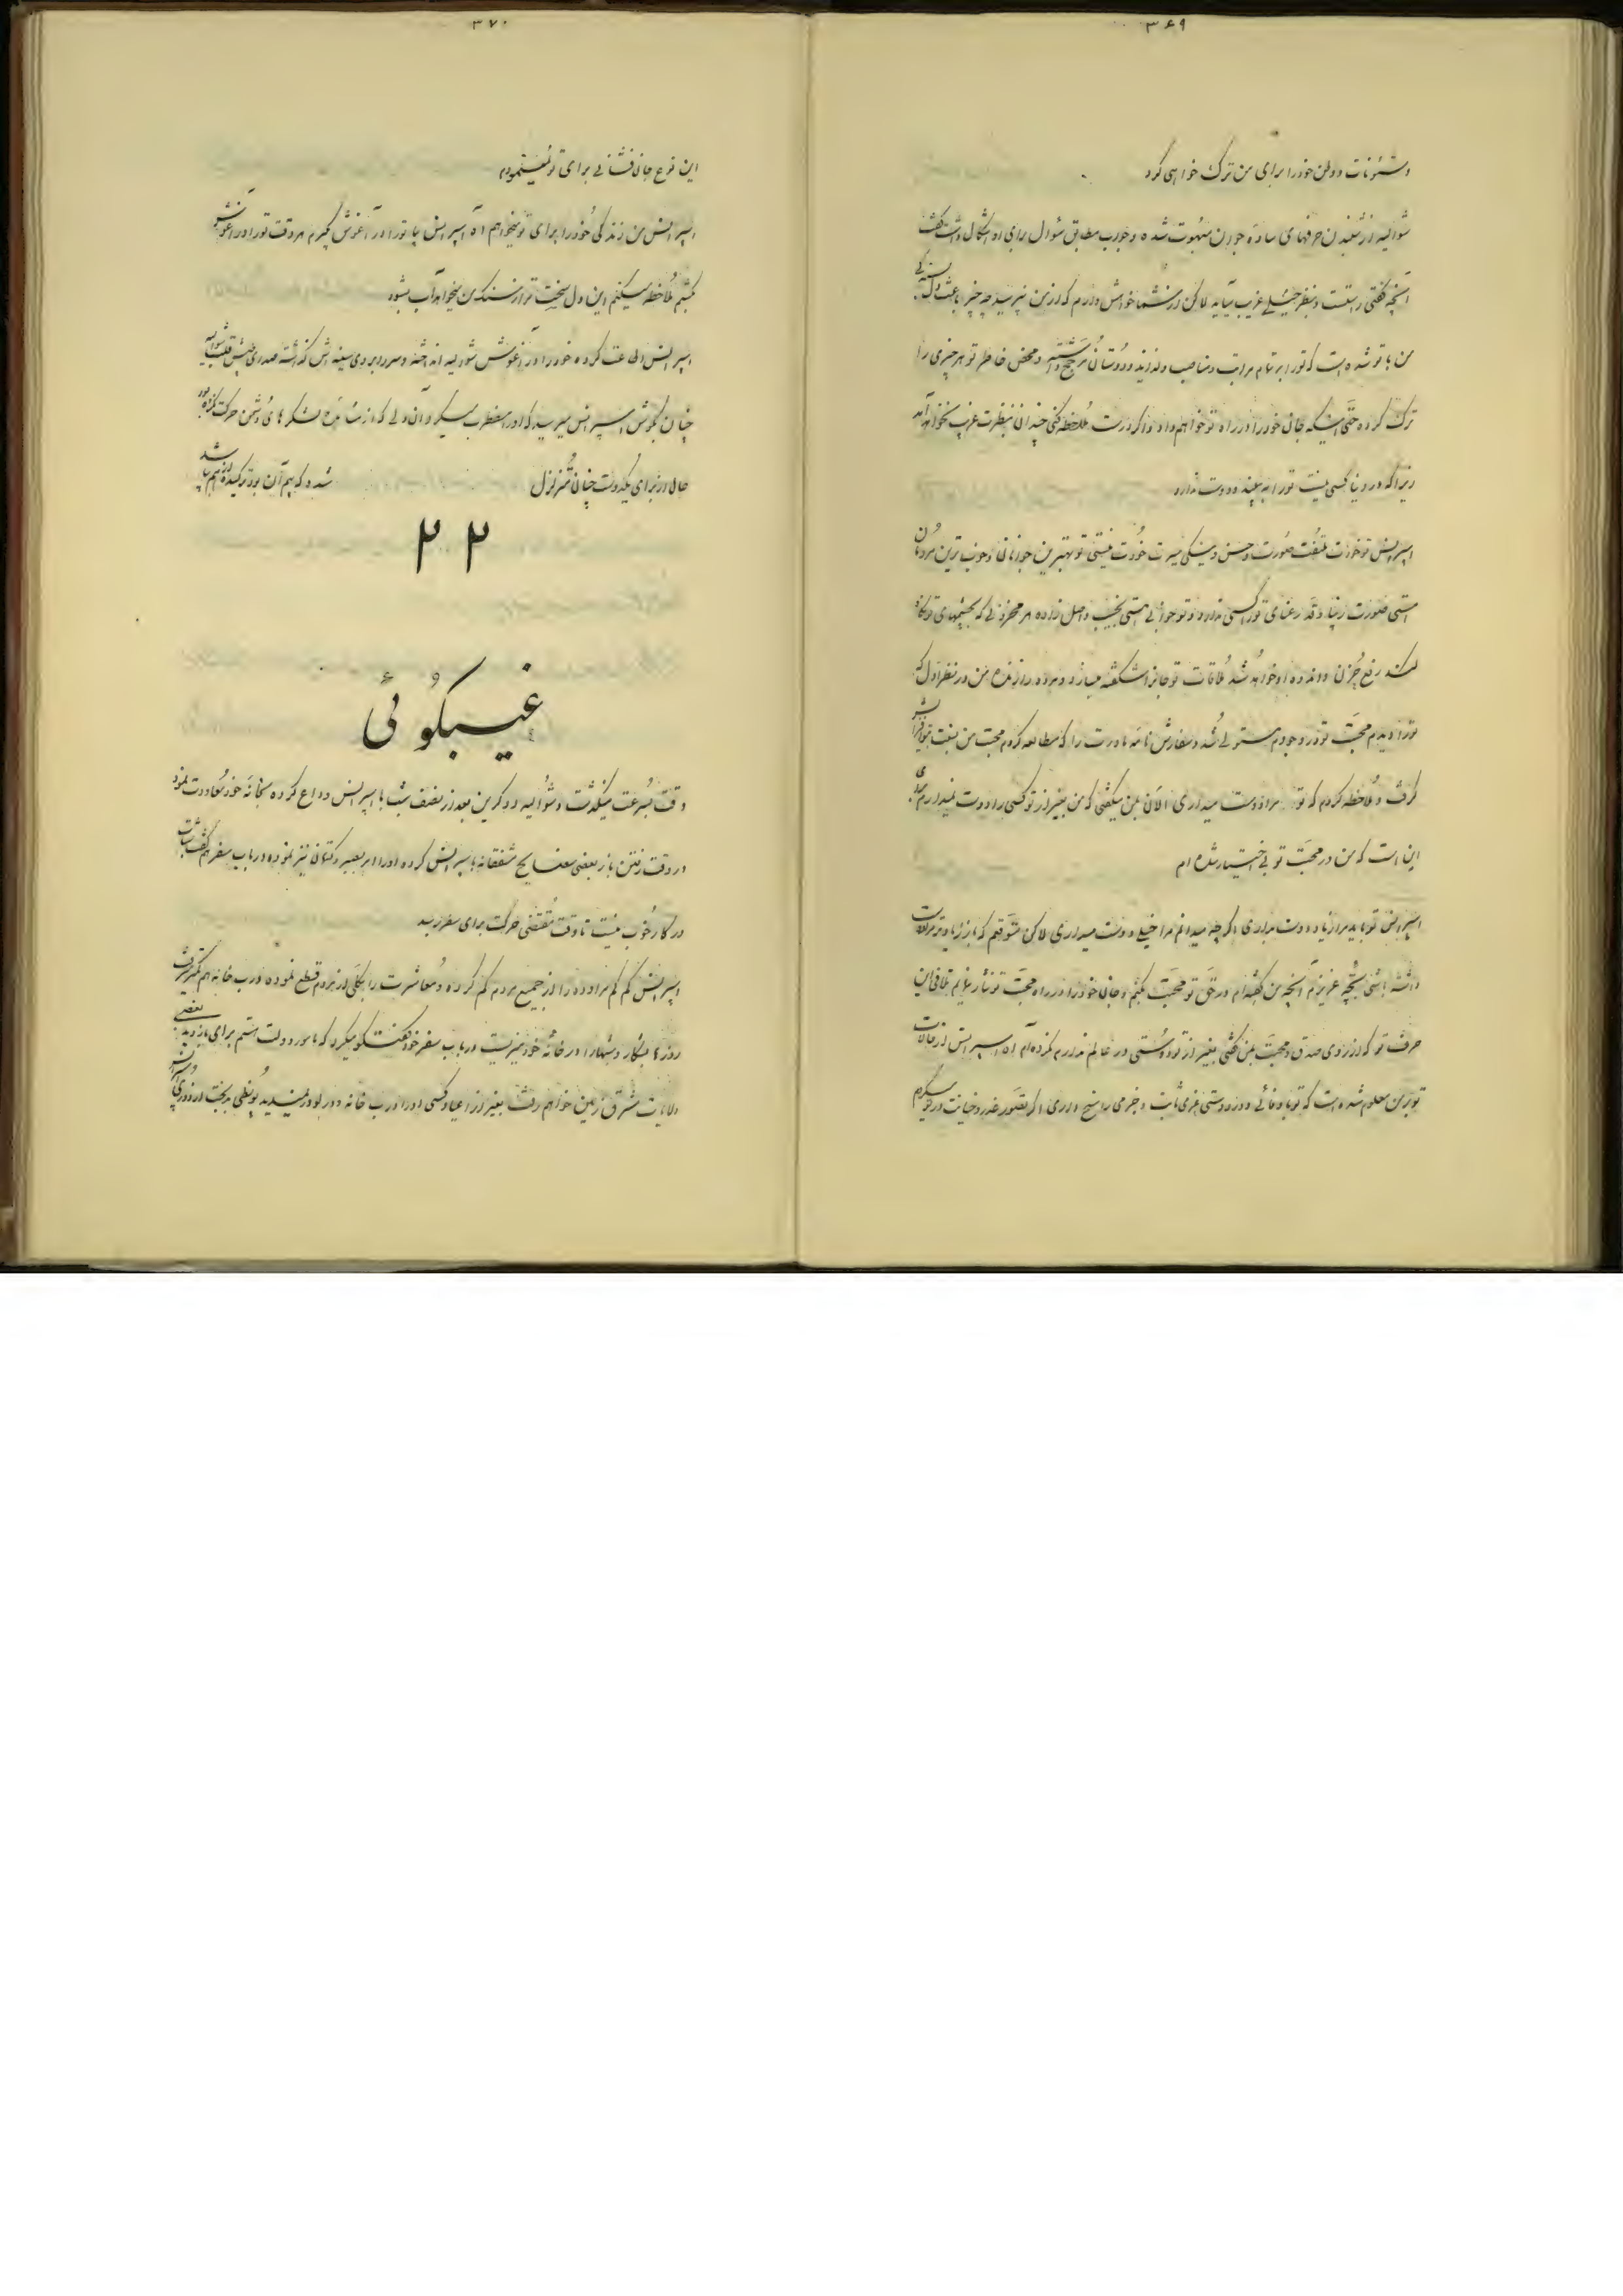 ۳۶۹
و شئونات و وطن خود را برای من ترک خواهی کرد
شوالیه از شنیدن حرفهای ساده جوان مبهوت شده و جواب مطابق سؤال برای او اشکال داشت گفت
آنچه گفتی راست و بنظر خیلی غریب میآید لاکن از شما خواهش دارم که از من نپرسید چه چیز باعث دلبستگی
من با تو شده است که تو را بر تمام مراتب و مناصب و لذاید و دوستان ترجیح داشته و محض خاطر تو هر چیزی را
ترک کرده حتی اینکه جان خود را در راه تو خواهم داد و اگر درست ملاحظه کنی چندان بنظرت غریب نخواهد آمد
زیرا که در دنیا کسی نیست تو را به بیند و دوست ندارد
اسپرانس تو خودت ملتفت صورت و حسن و نیکی سیرت خودت نیستی تو بهترین جوانان و خوب ترین مردمان
هستی صورت زیبا و قد رعنای تو را کسی ندارد و تو جوانی هستی نجیب و اصل زاده هر محزونی که بچشمهای تو نگاه
کند رفع حزن و اندوه او خواهد شد ملاقات تو جانرا شکفته میسازد و مرده را زنده من در نظر اول که
تو را دیدم محبت تو در وجودم مستولی شد و سفارش نامه مادرت را که مطالعه کردم محبت من نسبت بتو افزایش
گرفت و ملاحظه کردم که تو مرا دوست میداری الآن بمن میگفتی که من بغیر از تو کسی را دوست نمیدارم
این است که من در محبت تو بی اختیار شده ام
اسپرانس تو باید مرا زیاد دوست بداری اگر چه میدانم مرا خیلی دوست میداری لاکن متوقعم که باز زیادتر مرا دوست
داشته باشی بچه عزیزم آنچه من گفته ام در حق تو محبت بکنم و جان خود را در راه محبت تو نثار نمایم بتلافی این
حرف تو که از روی صدق و محبت بمن گفتی بغیر از تو دوستی در عالم ندارم نکرده ام آه اسپرانس از حالات
تو بر من معلوم شده است که تو با وفائی و در دوستی عزمی ثابت و جزمی راسخ داری اگر تصور غدر و خیانت در تو میکردم
۳۷۰
این نوع جان فشانی برای تو نمینمودم
اسپرانس من زندگی خود را برای تو میخواهم آه اسپرانس بیا تو را در آغوش گیرم هر وقت تو را در آغوش
میکشم ملاحظه میکنم این دل سخت تر از سنگ من میخواهد آب بشود
اسپرانس اطاعت کرده خود را در آغوش شوالیه انداخته و سر را بر روی سینه اش گذاشته صدای طپش قلب شوالیه
چنان بگوش اسپرانس میرسید که او را مضطرب میکرد آن دلی که از مشاهده لشکرهای دشمن حرکت نکرده بود
حالا از برای یکدوست چنان متزلزل شده که بیم آن بود ترکیده از هم بپاشد
۲۲
غیبگوئی
وقت بسرعت میگذشت و شوالیه دوکرین بعد از نصف شب با اسپرانس وداع کرده بخانه خود معاودت نمود
در وقت رفتن باز بعضی نصایح مشفقانه باسپرانس کرده او را امر بصبر و کتمان نیز نموده در باب سفر هم گفت شتاب
در کار خوب نیست تا وقت مقتضی حرکت برای سفر رسد
اسپرانس کم کم مراوده را از جمیع مردم کم کرده و معاشرت را بکلی از مردم قطع نموده درب خانه هم کمتر میرفت
روزها بشکار و شبها را در خانه خود میزیست در باب سفر خود گفتگو میکرد که مامور دولت هستم برای بازدید بعضی
ولایات مشرق زمین خواهم رفت بغیر از اعیاد کسی او را درب خانه و در لوور نمیدید